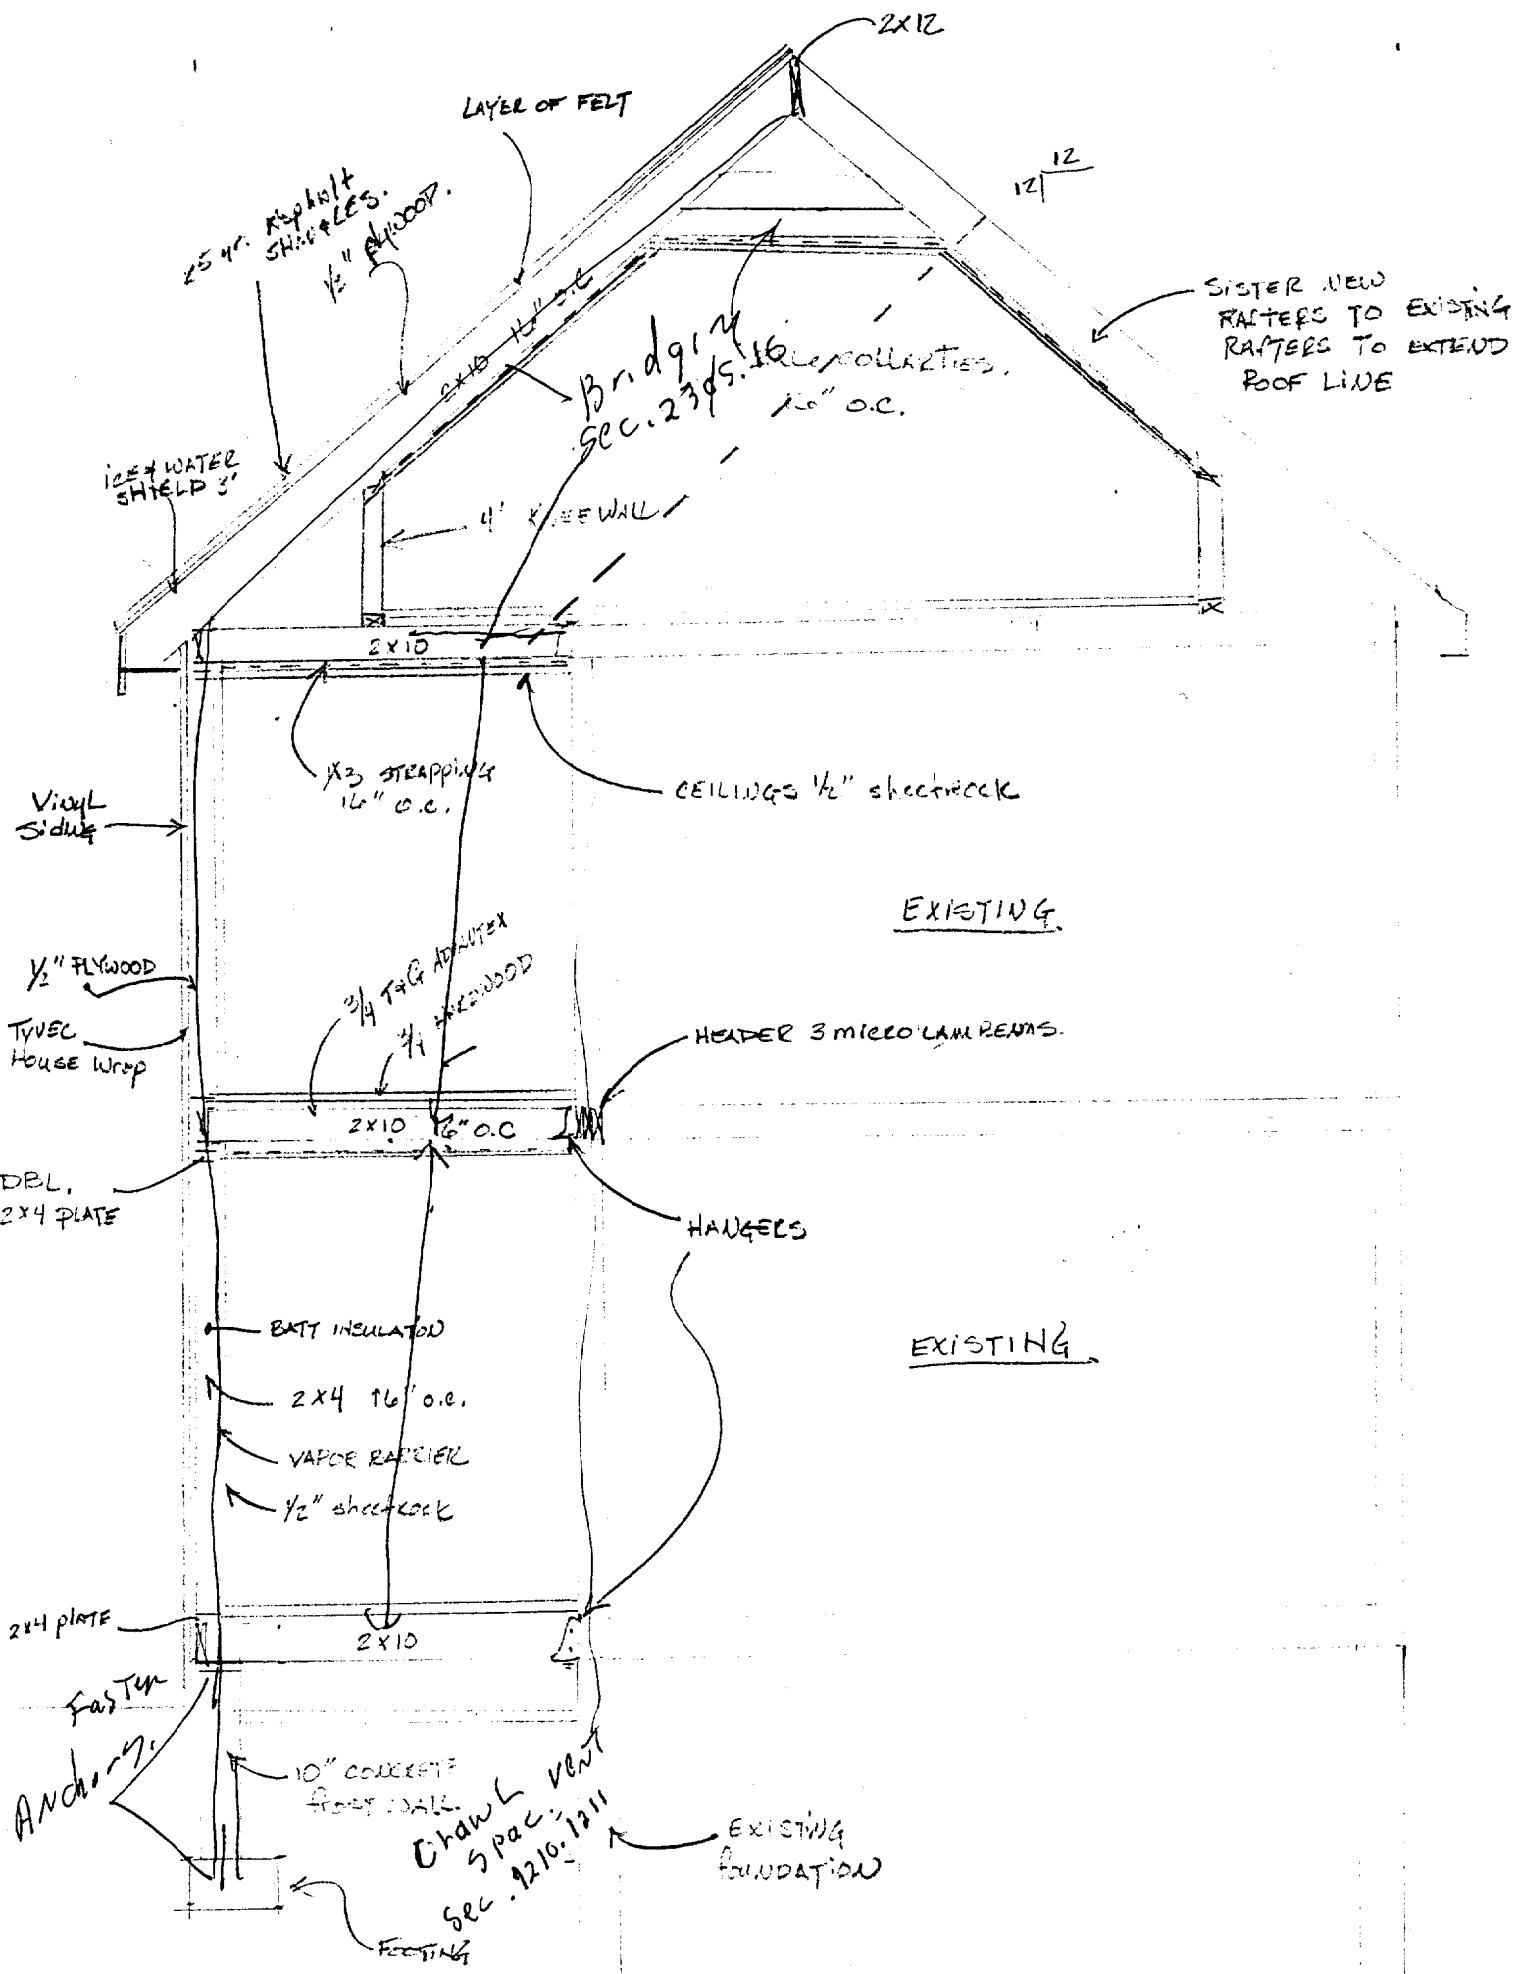 2X12
LAYER OF FELT
12
12
25 yr. Asphalt
SHINGLES.
1/2" PLYWOOD.
SISTER NEW
RAFTERS TO EXISTING
RAFTERS TO EXTEND
ROOF LINE
2X10 16" O.C
Bridging
Sec. 23
COLLARTIES.
16" O.C.
ICE & WATER
SHIELD 3'
4' KNEEWALL
2X10
1X3 STRAPPING
16" O.C.
CEILINGS 1/2" sheetrock
Vinyl
Siding
EXISTING
3/4 T&G ADVNTEX
3/4 HARDWOOD
1/2" PLYWOOD
TYVEC
HOUSE Wrap
HEADER 3 MICRO LAM BEAMS.
2X10 16" O.C
DBL.
2X4 PLATE
HANGERS
BATT INSULATON
EXISTING
2X4 16" O.C.
VAPOR BARRIER
1/2" sheetrock
2X4 PLATE
2X10
Fasten
Anchors.
10" CONCRETE
FROST WALL.
Crawl Vent
Spac.
Sec. 1210.1211
EXISTING
FOUNDATION
FOOTING